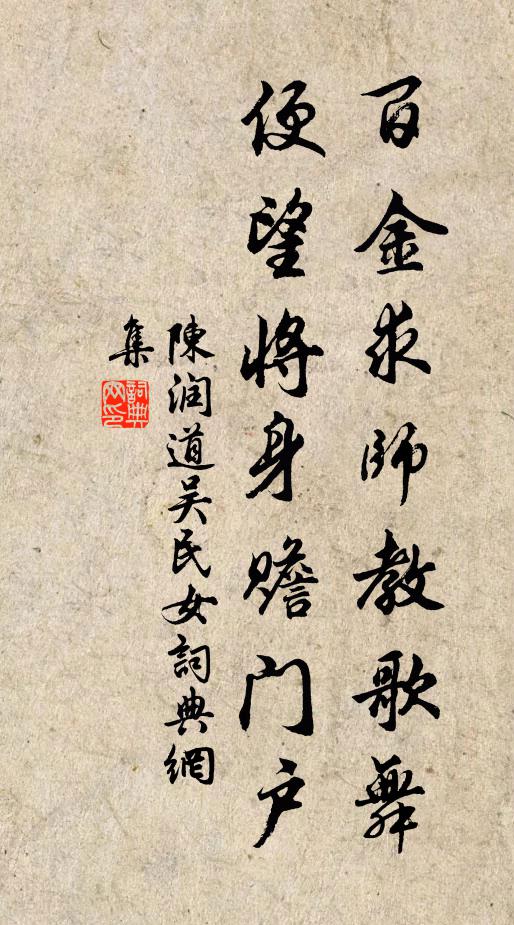 百金求師教歌舞
便望將身贍门户
陳润道吴民女詞典網
集
詞典
网印